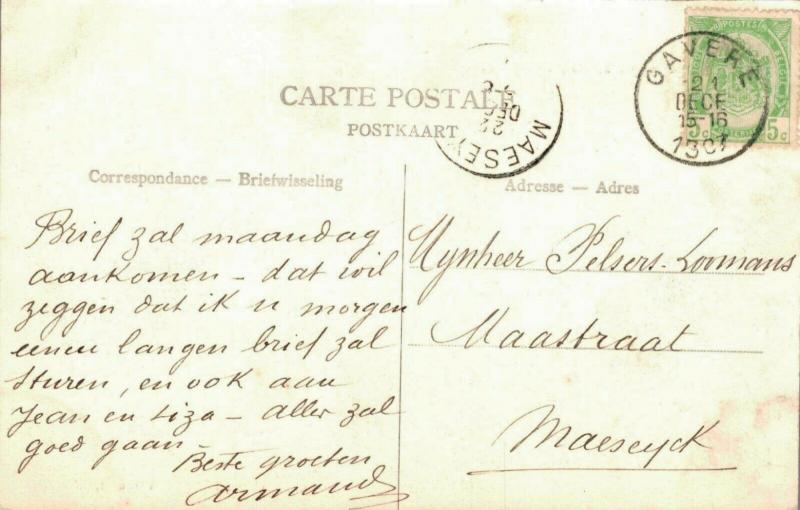 CARTE POSTALE
POSTKAART
GAVERE
21
DECE
15-16
1907
MAESEY
22
DEC
POSTES
5c 5c
Correspondance — Briefwisseling
Adresse — Adres
Brief zal maandag
aankomen – dat wil
zeggen dat ik u morgen
eenen langen brief zal
sturen, en ook aan
Jean en Liza – aller zal
goed gaan –
Beste groeten
Armand
Mynheer Pelsers-Loomans
Maastraat
Maeseyck